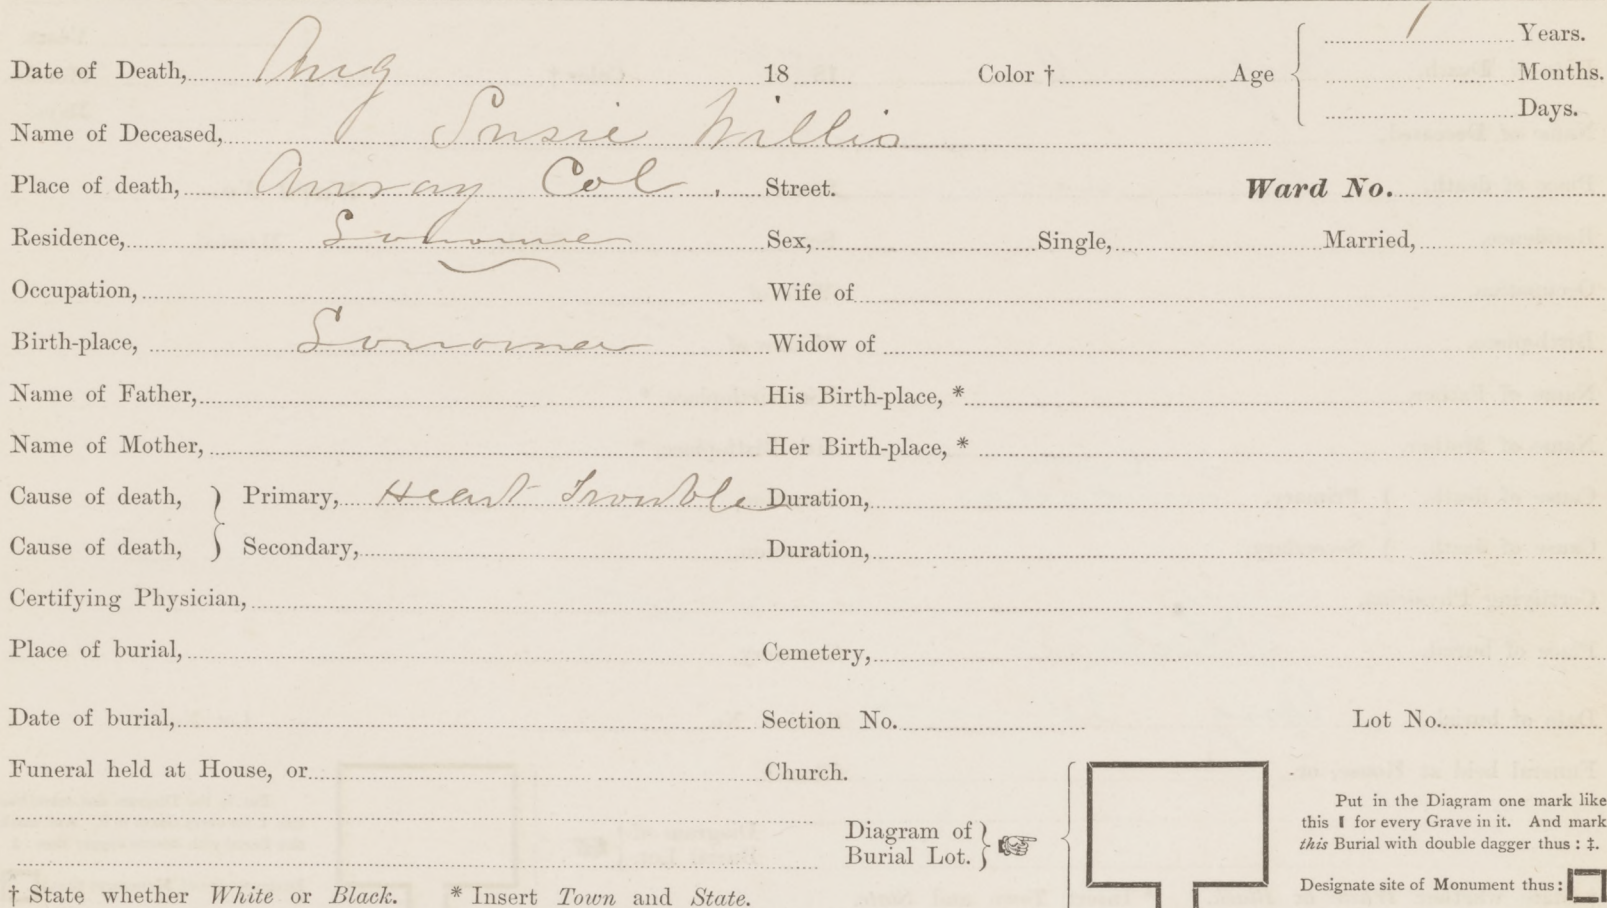 1 Years.
Date of Death, Aug 18 Color † Age Months.
Days.
Name of Deceased, Susie Willis
Place of death, Ouray Col. Street. Ward No.
Residence, Sonoma Sex, Single, Married,
Occupation, Wife of
Birth-place, Sonoma Widow of
Name of Father, His Birth-place, *
Name of Mother, Her Birth-place, *
Cause of death, } Primary, Heart Trouble Duration,
Cause of death, } Secondary, Duration,
Certifying Physician,
Place of burial, Cemetery,
Date of burial, Section No. Lot No.
Funeral held at House, or Church.
Put in the Diagram one mark like
this ▮ for every Grave in it. And mark
this Burial with double dagger thus : ‡.
Diagram of
Burial Lot. }
Designate site of Monument thus :
† State whether White or Black. * Insert Town and State.